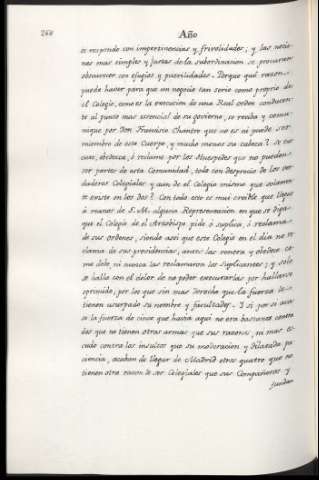 260
Año
se responde con impertinencias y frivolidades; y las notio-
nes mas simples y justas de la subordinacion se procuran
obscurecer con efugios y puerilidades. Porque qué razon
puede haver para que un negocio tan serio como proprio de
el Colegio, como es la execucion de una Real orden conducen-
te al punto mas essencial de su govierno, se reciba y comu-
nique por Don Francisco Chantre que no es ni puede ser
miembro de este Cuerpo, y mucho menos su cabeza?
se obedezca, ó reclame por los Huespedes que no pueden
ser parte de esta Comunidad, sola con desprecio de los ver-
daderos Colegiales y aun de el Colegio mismo que solamen-
te existe en los dos? Con todo esto es mui creible que llegue
á manos de S. M. alguna Representacion en que se diga
que el Colegio de el Arzobispo pide ó suplica, ó reclama
de sus ordenes, siendo assi que este Colegio en el dia no re-
clama de sus providencias, antes las venera y obedece co-
mo debe, ni nunca las reclamaron los Suplicantes; y solo
se halla con el dolor de no poder executarlas por hallarse
oprimido, por los que sin mas derecho que la fuerza le
tienen usurpado su nombre y facultades. Y si por si aca-
so la fuerza de cinco que havia aqui no era bastante contra
dos que no tienen otras armas que sus razones, ni mas es-
cudo contra los insultos que su moderacion y dilatada pa-
ciencia, acaban de llegar de Madrid otros quatro que no
tienen otra razon de ser Colegiales que sus Compañeros y
fundan